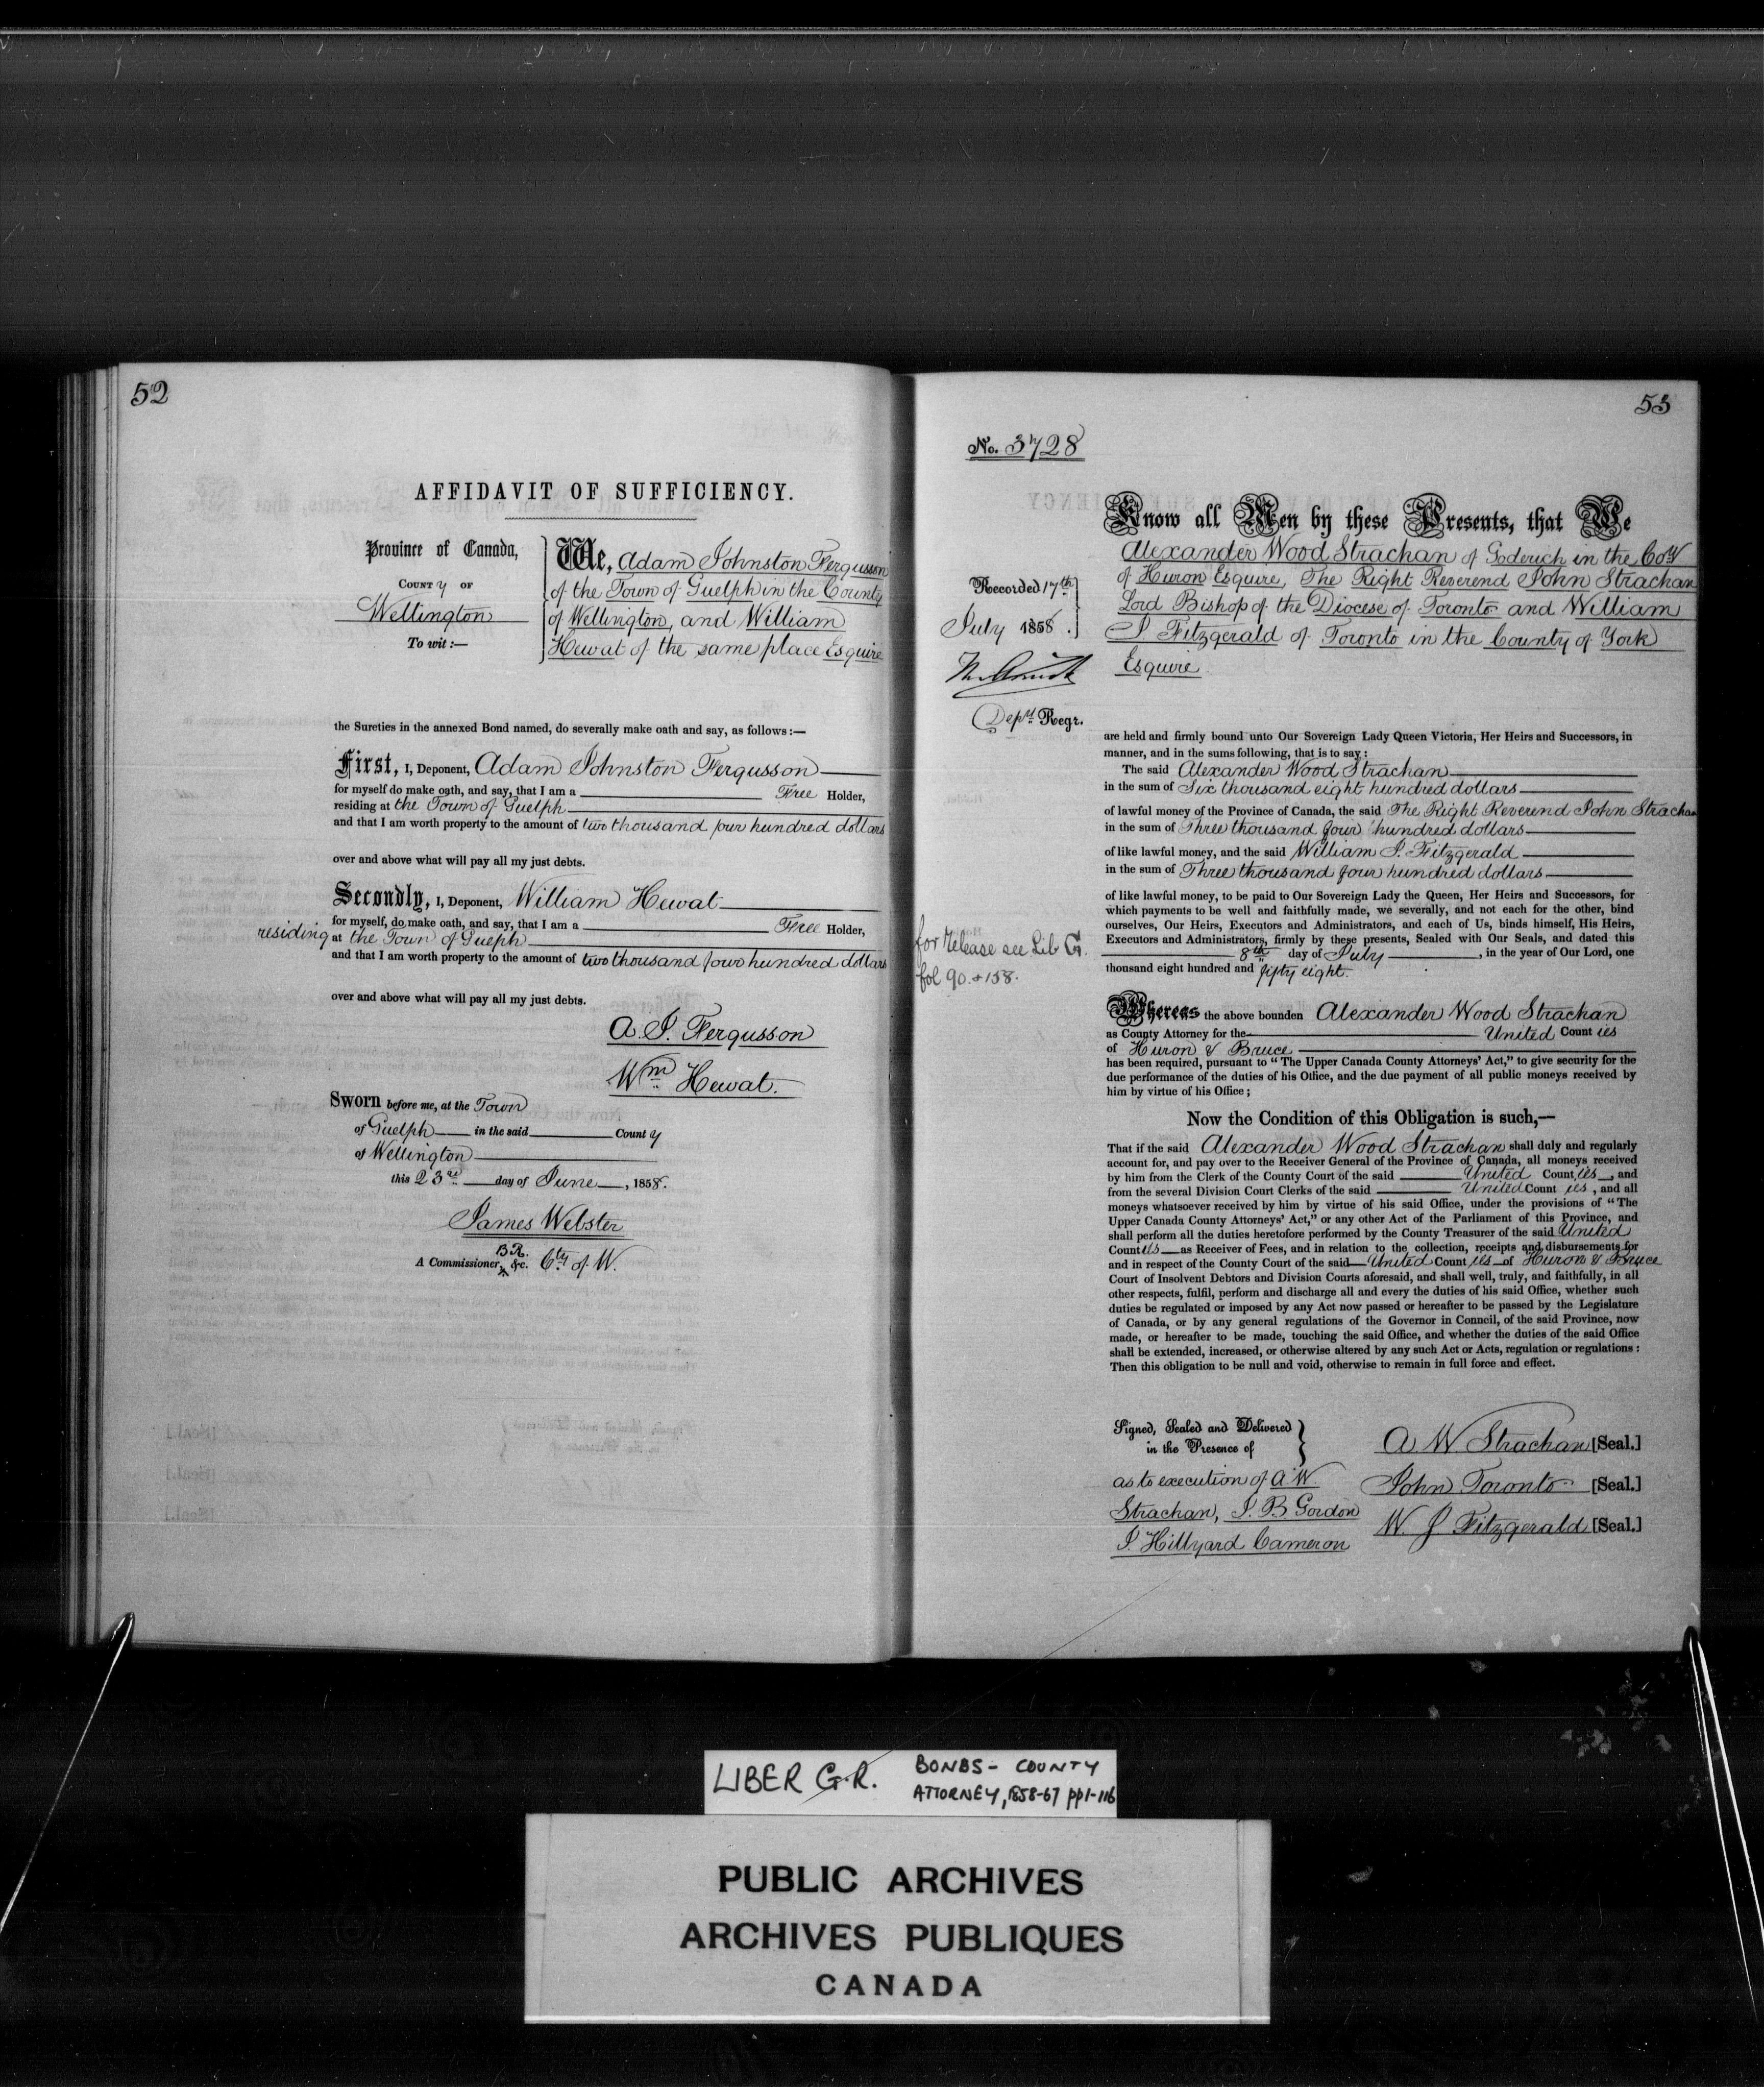 52
AFFIDAVIT OF SUFFICIENCY.
Province of Canada,
County of
Wellington
To wit:—
We, Adam Johnston Fergusson
of the Town of Guelph in the County
of Wellington, and William
Hewat of the same place Esquire
the Sureties in the annexed Bond named, do severally make oath and say, as follows:—
First, I, Deponent, Adam Johnston Fergusson
for myself do make oath, and say, that I am a Free Holder,
residing at the Town of Guelph
and that I am worth property to the amount of two thousand four hundred dollars
over and above what will pay all my just debts.
Secondly, I, Deponent, William Hewat
for myself, do make oath, and say, that I am a Free Holder,
residing at the Town of Guelph
and that I am worth property to the amount of two thousand four hundred dollars
over and above what will pay all my just debts.
A. J. Fergusson
Wm Hewat.
Sworn before me, at the Town
of Guelph in the said County
of Wellington
this 23rd day of June, 1858.
James Webster
B.R.
A Commissioner, &c. Cty of W.
53
No. 3728
Recorded 17th
July 1858.
Depy Regr.
for release see Lib G.
fol 90. & 158.
Know all Men by these Presents, that We
Alexander Wood Strachan of Goderich in the Coy
of Huron Esquire, The Right Reverend John Strachan
Lord Bishop of the Diocese of Toronto and William
J Fitzgerald of Toronto in the County of York
Esquire
are held and firmly bound unto Our Sovereign Lady Queen Victoria, Her Heirs and Successors, in
manner, and in the sums following, that is to say:
The said Alexander Wood Strachan
in the sum of Six thousand eight hundred dollars
of lawful money of the Province of Canada, the said The Right Reverend John Strachan
in the sum of Three thousand four hundred dollars
of like lawful money, and the said William J. Fitzgerald
in the sum of Three thousand four hundred dollars
of like lawful money, to be paid to Our Sovereign Lady the Queen, Her Heirs and Successors, for
which payments to be well and faithfully made, we severally, and not each for the other, bind
ourselves, Our Heirs, Executors and Administrators, and each of Us, binds himself, His Heirs,
Executors and Administrators, firmly by these presents, Sealed with Our Seals, and dated this
8th day of July, in the year of Our Lord, one
thousand eight hundred and fifty eight.
Whereas the above bounden Alexander Wood Strachan
as County Attorney for the United Counties
of Huron & Bruce
has been required, pursuant to "The Upper Canada County Attorneys' Act," to give security for the
due performance of the duties of his Office, and the due payment of all public moneys received by
him by virtue of his Office;
Now the Condition of this Obligation is such,—
That if the said Alexander Wood Strachan shall duly and regularly
account for, and pay over to the Receiver General of the Province of Canada, all moneys received
by him from the Clerk of the County Court of the said United Counties, and
from the several Division Court Clerks of the said United Counties, and all
moneys whatsoever received by him by virtue of his said Office, under the provisions of "The
Upper Canada County Attorneys' Act," or any other Act of the Parliament of this Province, and
shall perform all the duties heretofore performed by the County Treasurer of the said United
Counties as Receiver of Fees, and in relation to the collection, receipts and disbursements for
and in respect of the County Court of the said United Counties of Huron & Bruce
Court of Insolvent Debtors and Division Courts aforesaid, and shall well, truly, and faithfully, in all
other respects, fulfil, perform and discharge all and every the duties of his said Office, whether such
duties be regulated or imposed by any Act now passed or hereafter to be passed by the Legislature
of Canada, or by any general regulations of the Governor in Council, of the said Province, now
made, or hereafter to be made, touching the said Office, and whether the duties of the said Office
shall be extended, increased, or otherwise altered by any such Act or Acts, regulation or regulations:
Then this obligation to be null and void, otherwise to remain in full force and effect.
Signed, Sealed and Delivered
in the Presence of
as to execution of A W
Strachan, J. B Gordon
J. Hillyard Cameron
A W Strachan [Seal.]
John Toronto [Seal.]
W. J Fitzgerald [Seal.]
LIBER G.R.
BONDS - COUNTY
ATTORNEY, 1858-67 pp1-116
PUBLIC ARCHIVES
ARCHIVES PUBLIQUES
CANADA